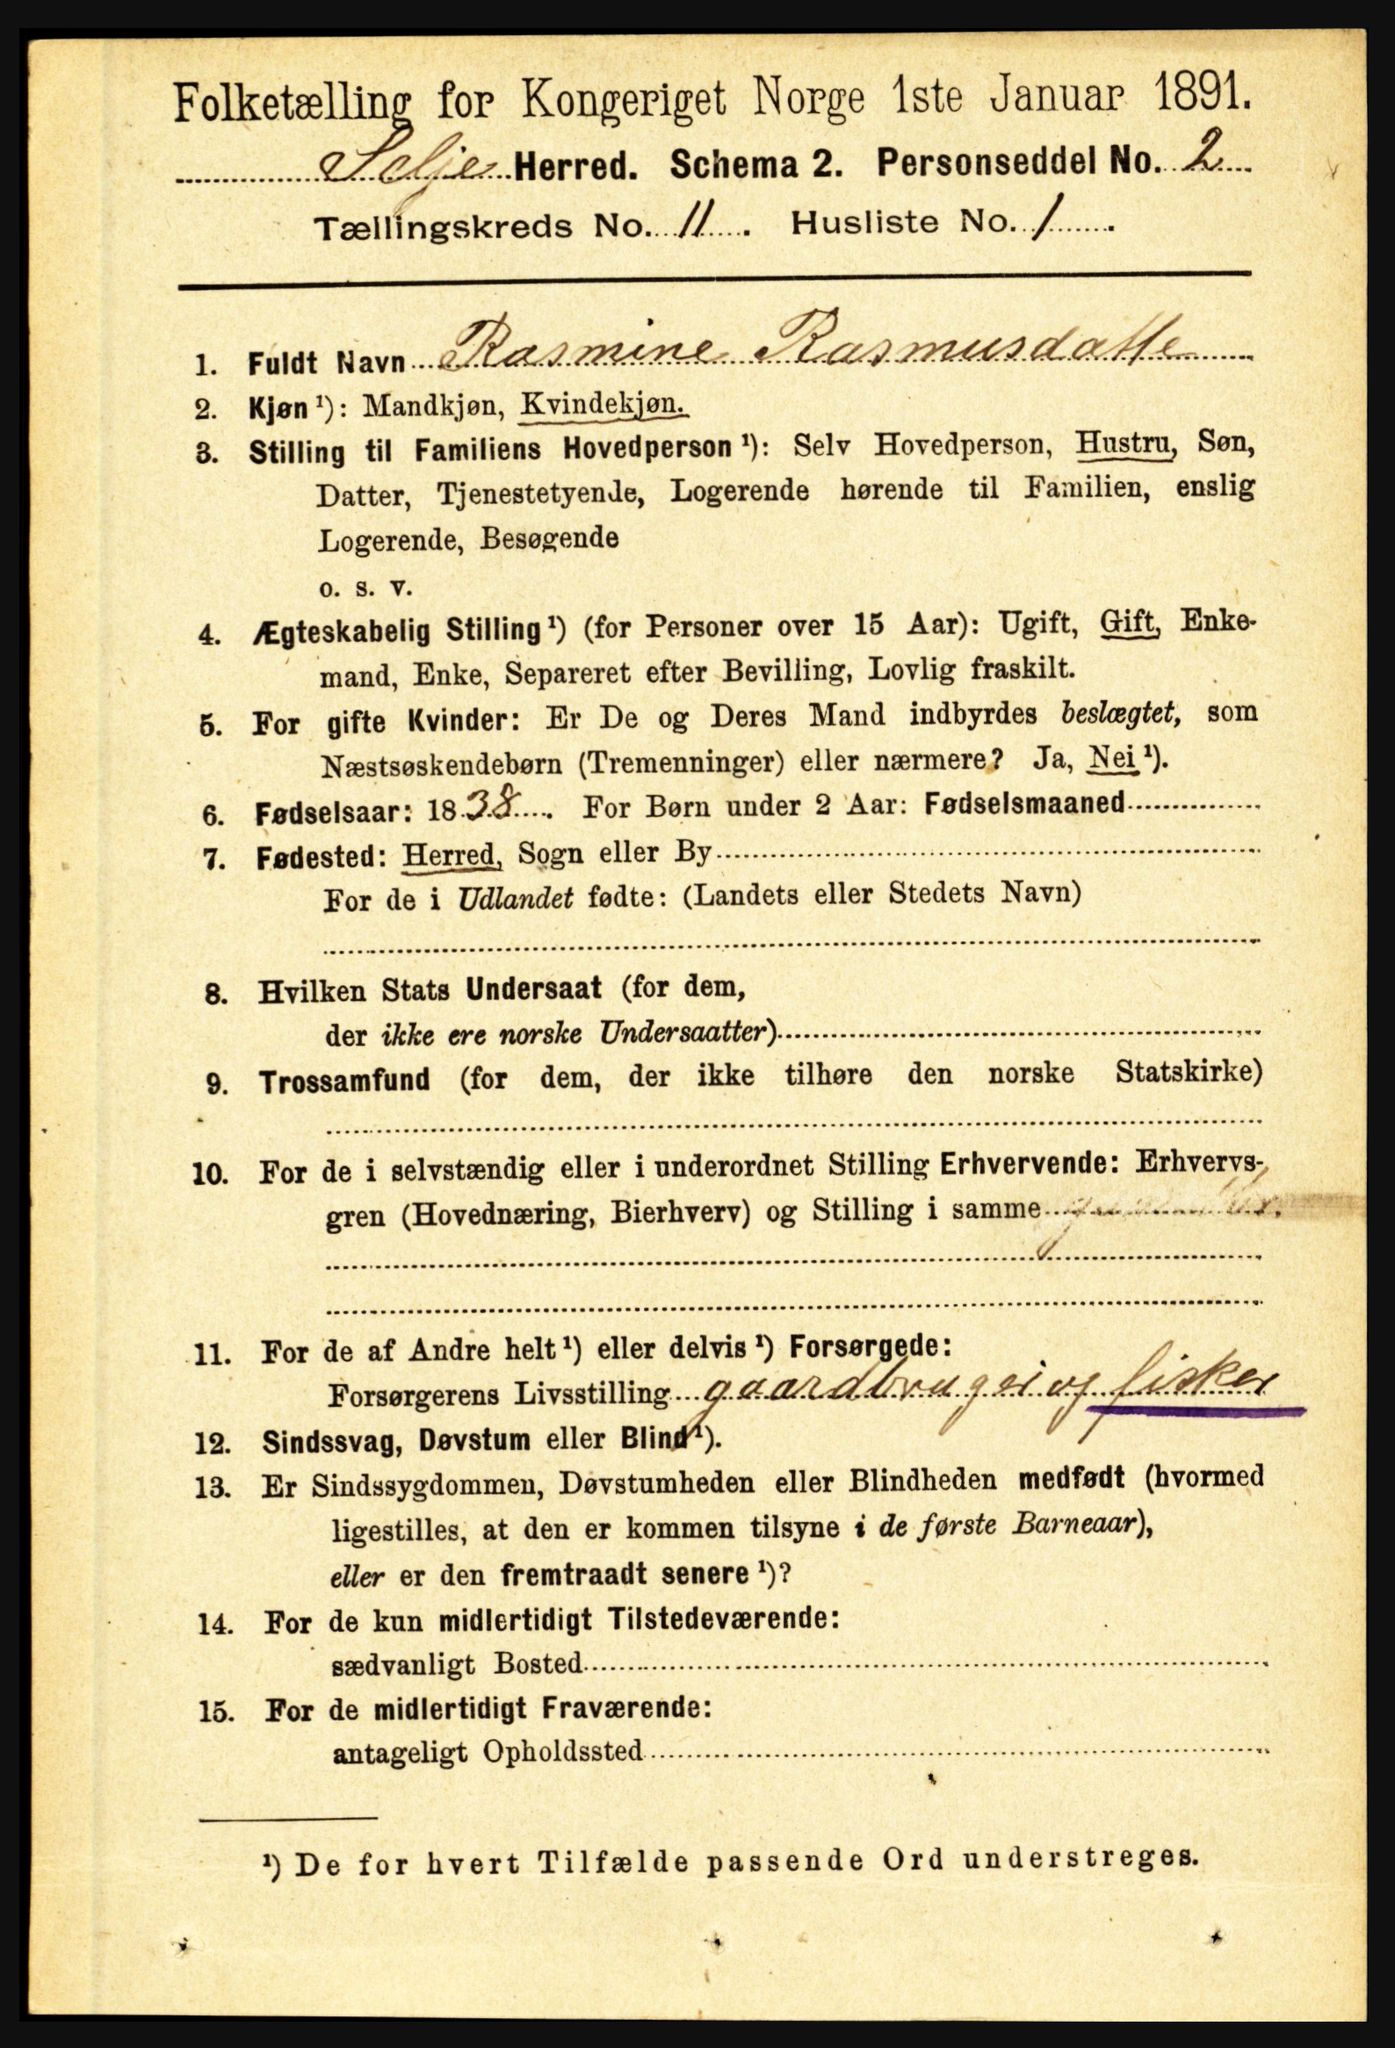 Folketælling for Kongeriget Norge 1ste Januar 1891.
Selje Herred. Schema 2. Personseddel No. 2
Tællingskreds No. 11. Husliste No. 1.
1. Fuldt Navn Rasmine Rasmusdatte
2. Kjøn ¹): Mandkjøn, Kvindekjøn.
3. Stilling til Familiens Hovedperson ¹): Selv Hovedperson, Hustru, Søn,
Datter, Tjenestetyende, Logerende hørende til Familien, enslig
Logerende, Besøgende
o. s. v.
4. Ægteskabelig Stilling ¹) (for Personer over 15 Aar): Ugift, Gift, Enke-
mand, Enke, Separeret efter Bevilling, Lovlig fraskilt.
5. For gifte Kvinder: Er De og Deres Mand indbyrdes beslægtet, som
Næstsøskendebørn (Tremenninger) eller nærmere? Ja, Nei ¹).
6. Fødselsaar: 1838. For Børn under 2 Aar: Fødselsmaaned
7. Fødested: Herred, Sogn eller By
For de i Udlandet fødte: (Landets eller Stedets Navn)
8. Hvilken Stats Undersaat (for dem,
der ikke ere norske Undersaatter)
9. Trossamfund (for dem, der ikke tilhøre den norske Statskirke)
10. For de i selvstændig eller i underordnet Stilling Erhvervende: Erhvervs-
gren (Hovednæring, Bierhverv) og Stilling i samme
11. For de af Andre helt ¹) eller delvis ¹) Forsørgede:
Forsørgerens Livsstilling gaardbruger og fisker
12. Sindssvag, Døvstum eller Blind ¹).
13. Er Sindssygdommen, Døvstumheden eller Blindheden medfødt (hvormed
ligestilles, at den er kommen tilsyne i de første Barneaar),
eller er den fremtraadt senere ¹)?
14. For de kun midlertidigt Tilstedeværende:
sædvanligt Bosted
15. For de midlertidigt Fraværende:
antageligt Opholdssted
¹) De for hvert Tilfælde passende Ord understreges.